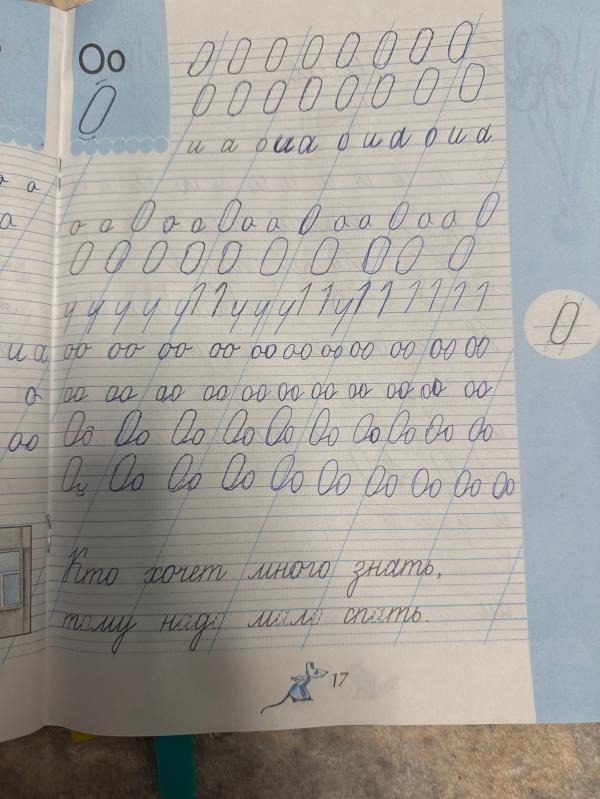 Оо
О
О О О О О О О О
О О О О О О О О
и а о и а о и а о и а
о а О о а О а а О а а О а а О
О О О О О О О О О О
у у у у у 1 1 у у у 1 1 у 1 1 1 1 1 1
оо оо оо оо оо оо оо оо оо оо оо
оо оо ао оо оо оо оо оо оо оо оо
Оо Оо Оо Оо Оо Оо Оо Оо Оо Оо
Оо Оо Оо Оо Оо Оо Оо Оо Оо Оо
Кто хочет много знать,
тому надо мало спать.
17
О
а а
а
и а
о
ао